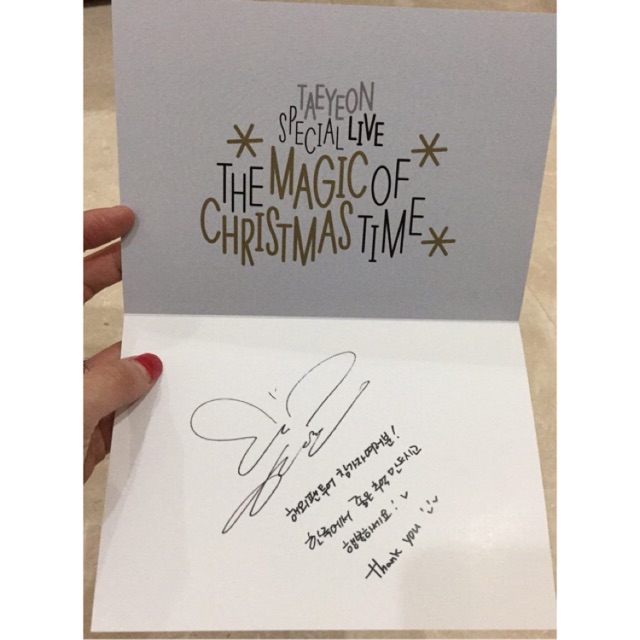 TAEYEON
SPECIAL LIVE
THE MAGIC OF
CHRISTMAS TIME
해외팬투어 참가자여러분!
한국에서 좋은 추억 만드시고
행복하세요!
thank you